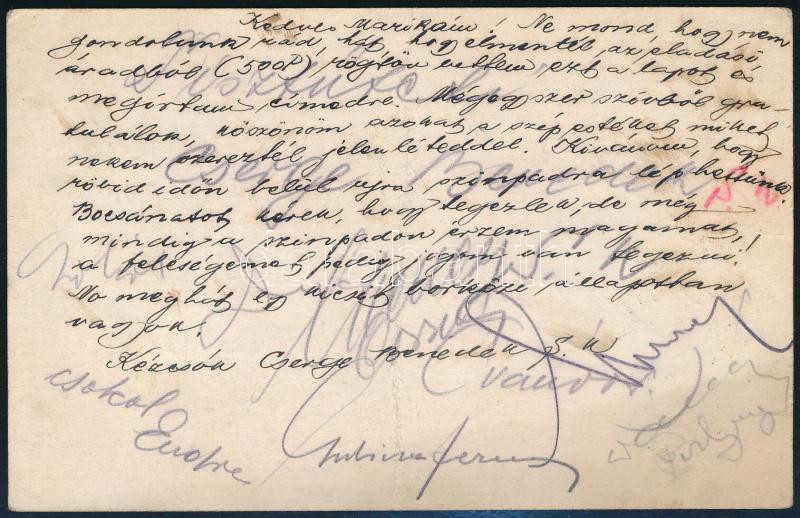 Kedves Marikám! Ne mond, hogy nem
gondolunk rád, hát hogy elmentél az eladási
áradból (500P), rögtön vettem ezt a lapot és
megirtam cimedre. Mégegyszer szívből gra-
tulálok, köszönöm azokat a szép estéket miket
nekem szereztél jelenléteddel. Kivánom, hogy
rövid időn belül ujra szinpadra léphessünk.
Bocsánatot kérek, hogy tegezlek, de még
mindig a szinpadon érzem magamat,
a feleségemet pedig jogom van tegezni!
No meg hát egy kicsit borközi állapotban
vagyok.
Kézcsók Cserge Benedek S. k
Cserge Benedek
csokol
Endre
darabanth